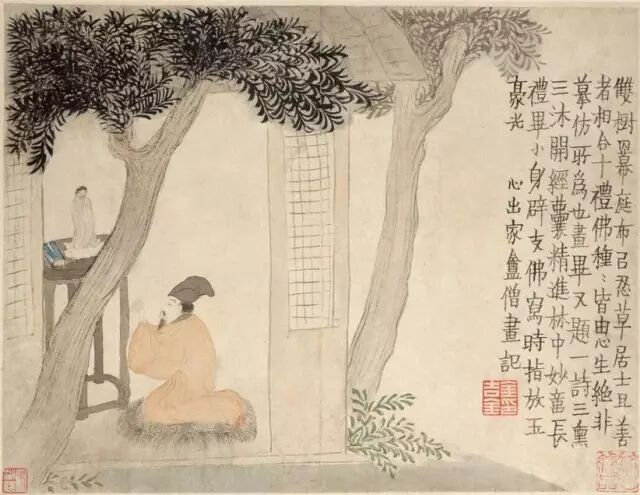 雙樹冪庭布㠯忍草居士具善
者相合十禮佛種〻皆由思生絕非
摹仿所爲也畫畢又題一詩三熏
三沐開經囊精進林中妙長
禮畢小身辟支佛寫時指放玉
豪光 心出家盦僧畫記